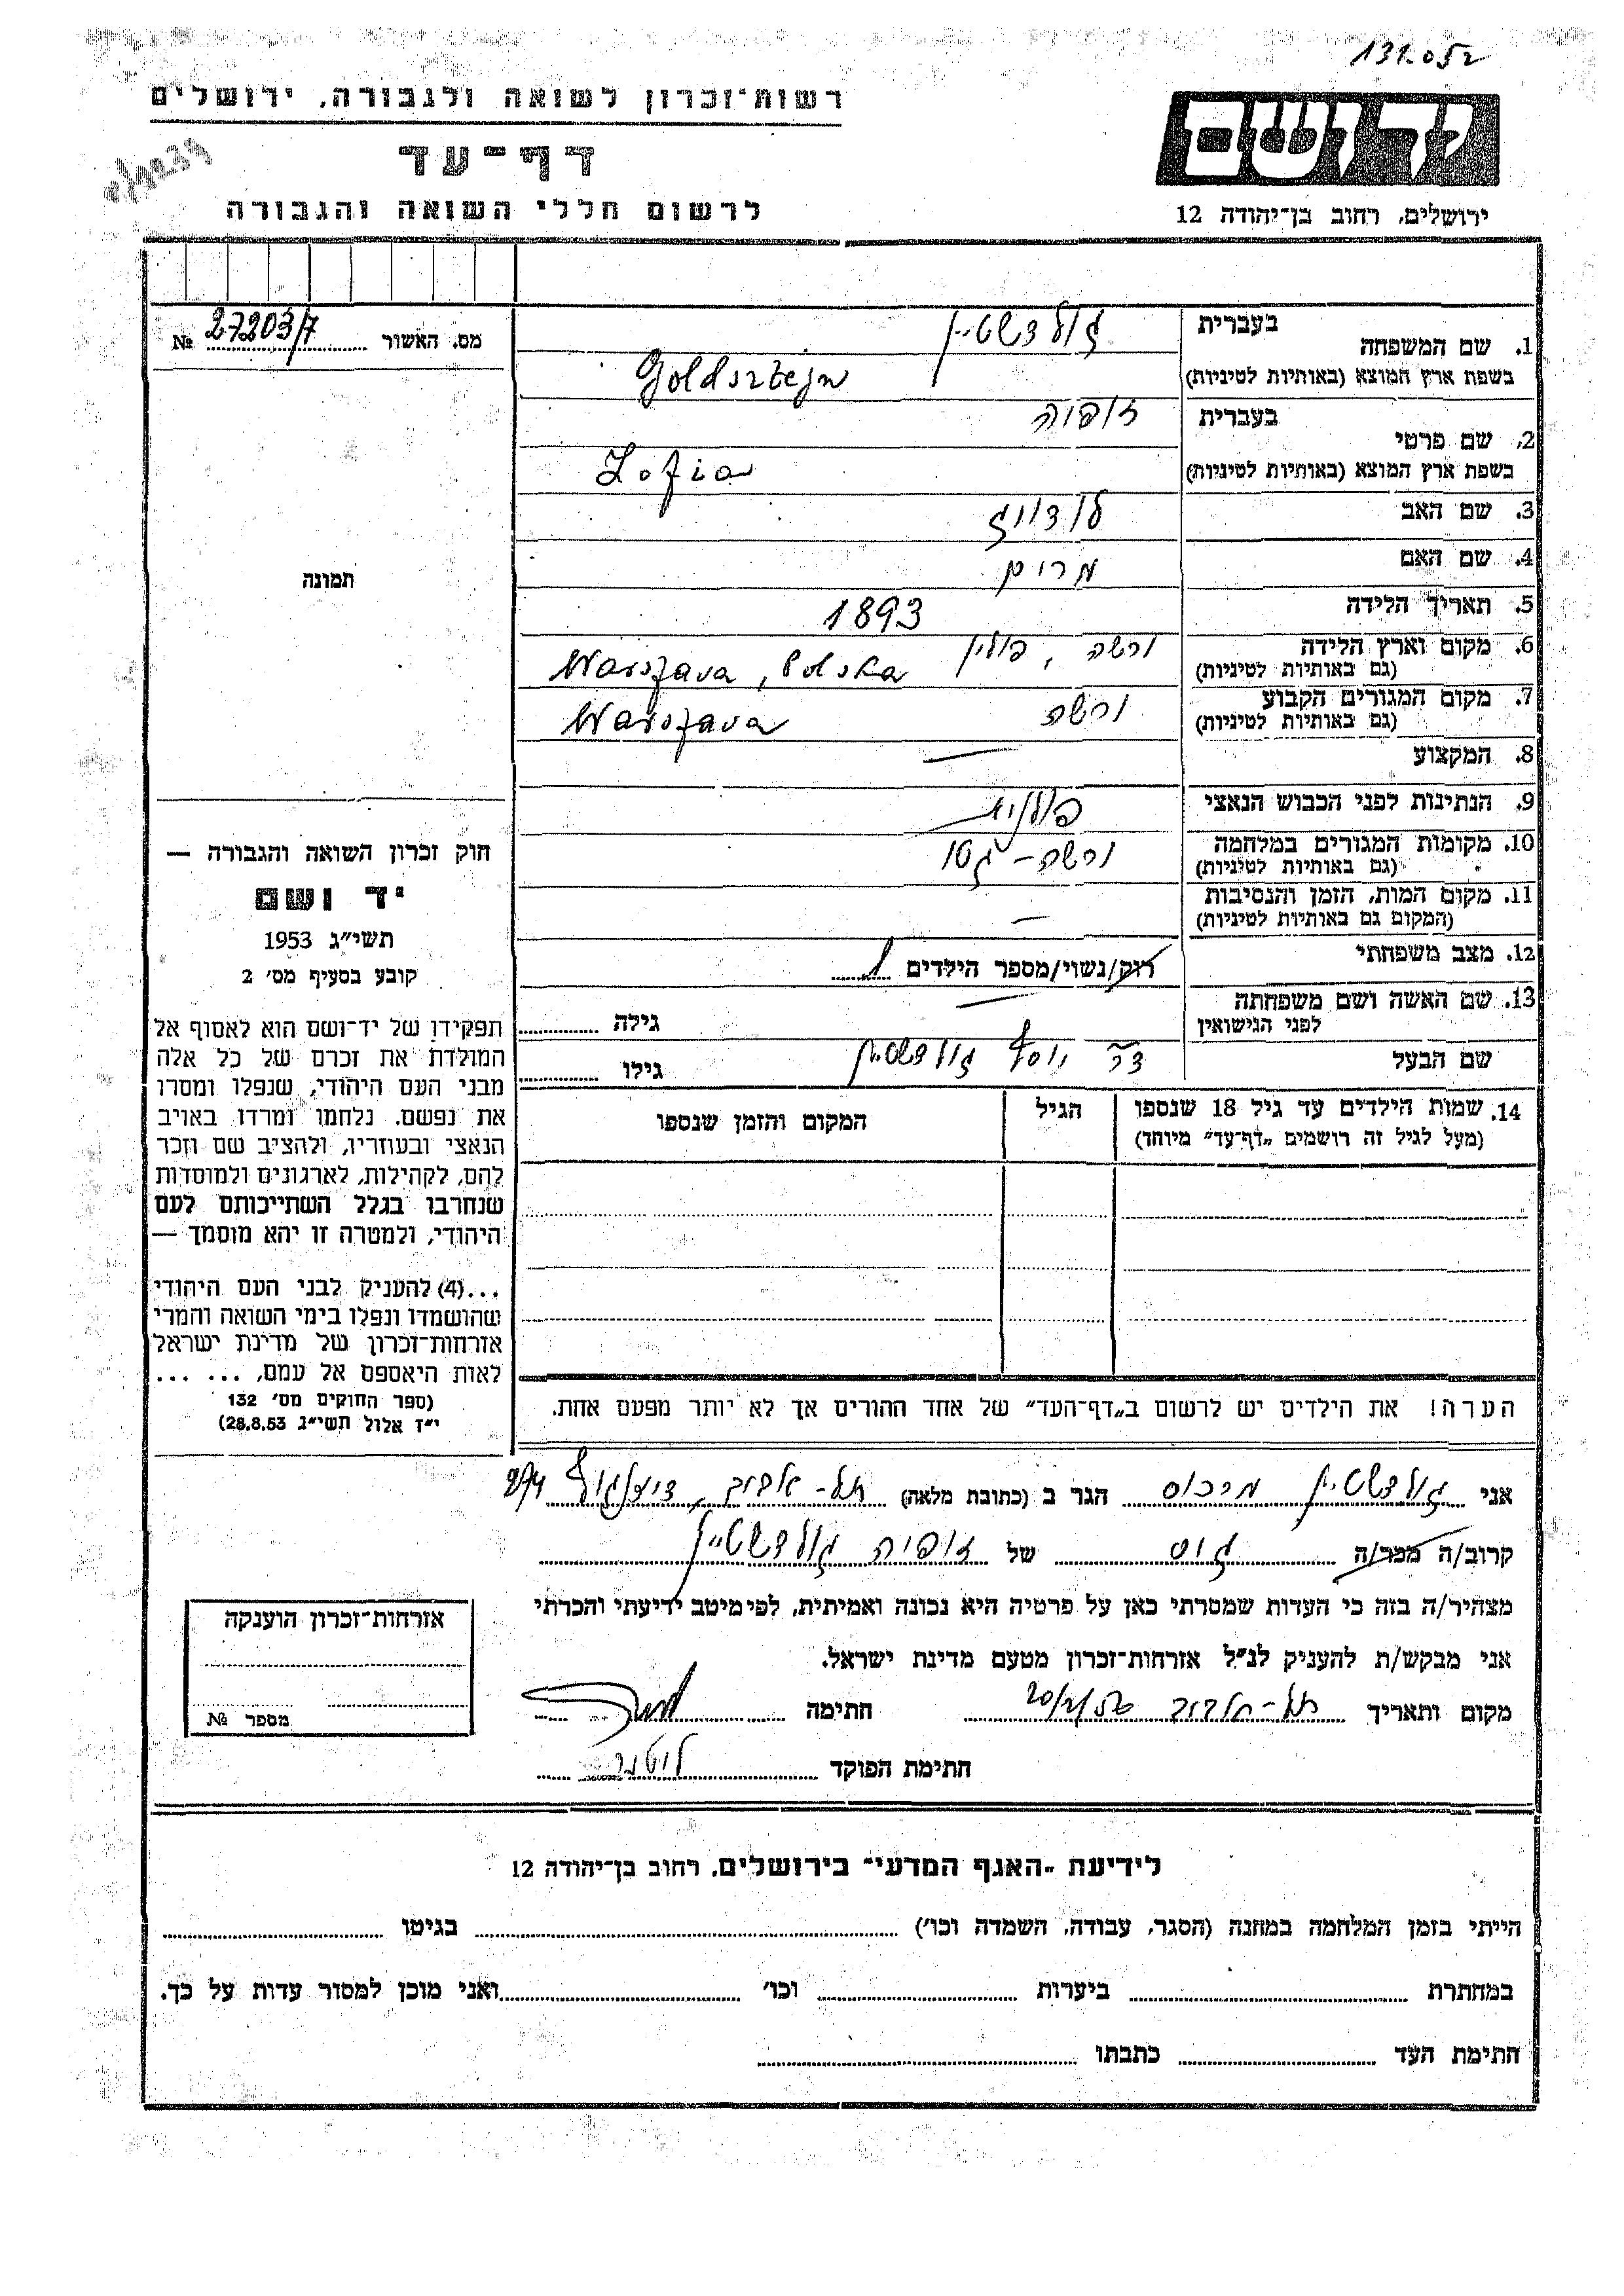 131.052
רשות־זכרון לשואה ולגבורה, ירושלים
דף־עד
לרשום חללי השואה והגבורה
יד ושם
ירושלים, רחוב בן־יהודה 12
מס. האשור № 27203/7
תמונה
חוק זכרון השואה והגבורה —
יד ושם
תשי״ג 1953
קובע בסעיף מס׳ 2
תפקידו של יד־ושם הוא לאסוף אל
המולדת את זכרם של כל אלה
מבני העם היהודי, שנפלו ומסרו
את נפשם, נלחמו ומרדו באויב
הנאצי ובעוזריו, ולהציב שם וזכר
להם, לקהילות, לארגונים ולמוסדות
שנחרבו בגלל השתייכותם לעם
היהודי, ולמטרה זו יהא מוסמך —
...(4) להעניק לבני העם היהודי
שהושמדו ונפלו בימי השואה והמרי
אזרחות־זכרון של מדינת ישראל
לאות היאספם אל עמם, ... ...
(ספר החוקים מס׳ 132
י״ז אלול תשי״ג 28.8.53)
1. שם המשפחה בעברית גולדשטיין
בשפת ארץ המוצא (באותיות לטיניות) Goldsztejn
2. שם פרטי בעברית זופיה
בשפת ארץ המוצא (באותיות לטיניות) Zofia
3. שם האב לודויג
4. שם האם מרים
5. תאריך הלידה 1893
6. מקום וארץ הלידה ורשה, פולין
(גם באותיות לטיניות) Warszava, Polska
7. מקום המגורים הקבוע ורשה
(גם באותיות לטיניות) Warszava
8. המקצוע —
9. הנתינות לפני הכבוש הנאצי פולנית
10. מקומות המגורים במלחמה ורשה - גטו
(גם באותיות לטיניות)
11. מקום המות, הזמן והנסיבות —
(המקום גם באותיות לטיניות)
12. מצב משפחתי רוק/נשוי/מספר הילדים 1
13. שם האשה ושם משפחתה —
לפני הגישואין גילה
שם הבעל ד״ר יוסף גולדשטיין גילו
14. שמות הילדים עד גיל 18 שנספו הגיל המקום והזמן שנספו
(מעל לגיל זה רושמים „דף־עד״ מיוחד)
הערה! את הילדים יש לרשום ב„דף־העד״ של אחד ההורים אך לא יותר מפעם אחת.
אני גולדשטיין מרכוס הגר ב (כתובת מלאה) תל-אביב, דיזנגוף 274
קרוב/ה מכר/ה גיס של זופיה גולדשטיין
מצהיר/ה בזה כי העדות שמסרתי כאן על פרטיה היא נכונה ואמיתית, לפי מיטב ידיעתי והכרתי
אני מבקש/ת להעניק לנ״ל אזרחות־זכרון מטעם מדינת ישראל.
מקום ותאריך תל-אביב חתימה
חתימת הפוקד
אזרחות־זכרון הוענקה
מספר №
לידיעת „האגף המדעי״ בירושלים, רחוב בן־יהודה 12
הייתי בזמן המלחמה במחנה (הסגר, עבודה, השמדה וכו׳) בגיטו
במחתרת ביערות וכו׳ ואני מוכן למסור עדות על כך.
חתימת העד כתבתו